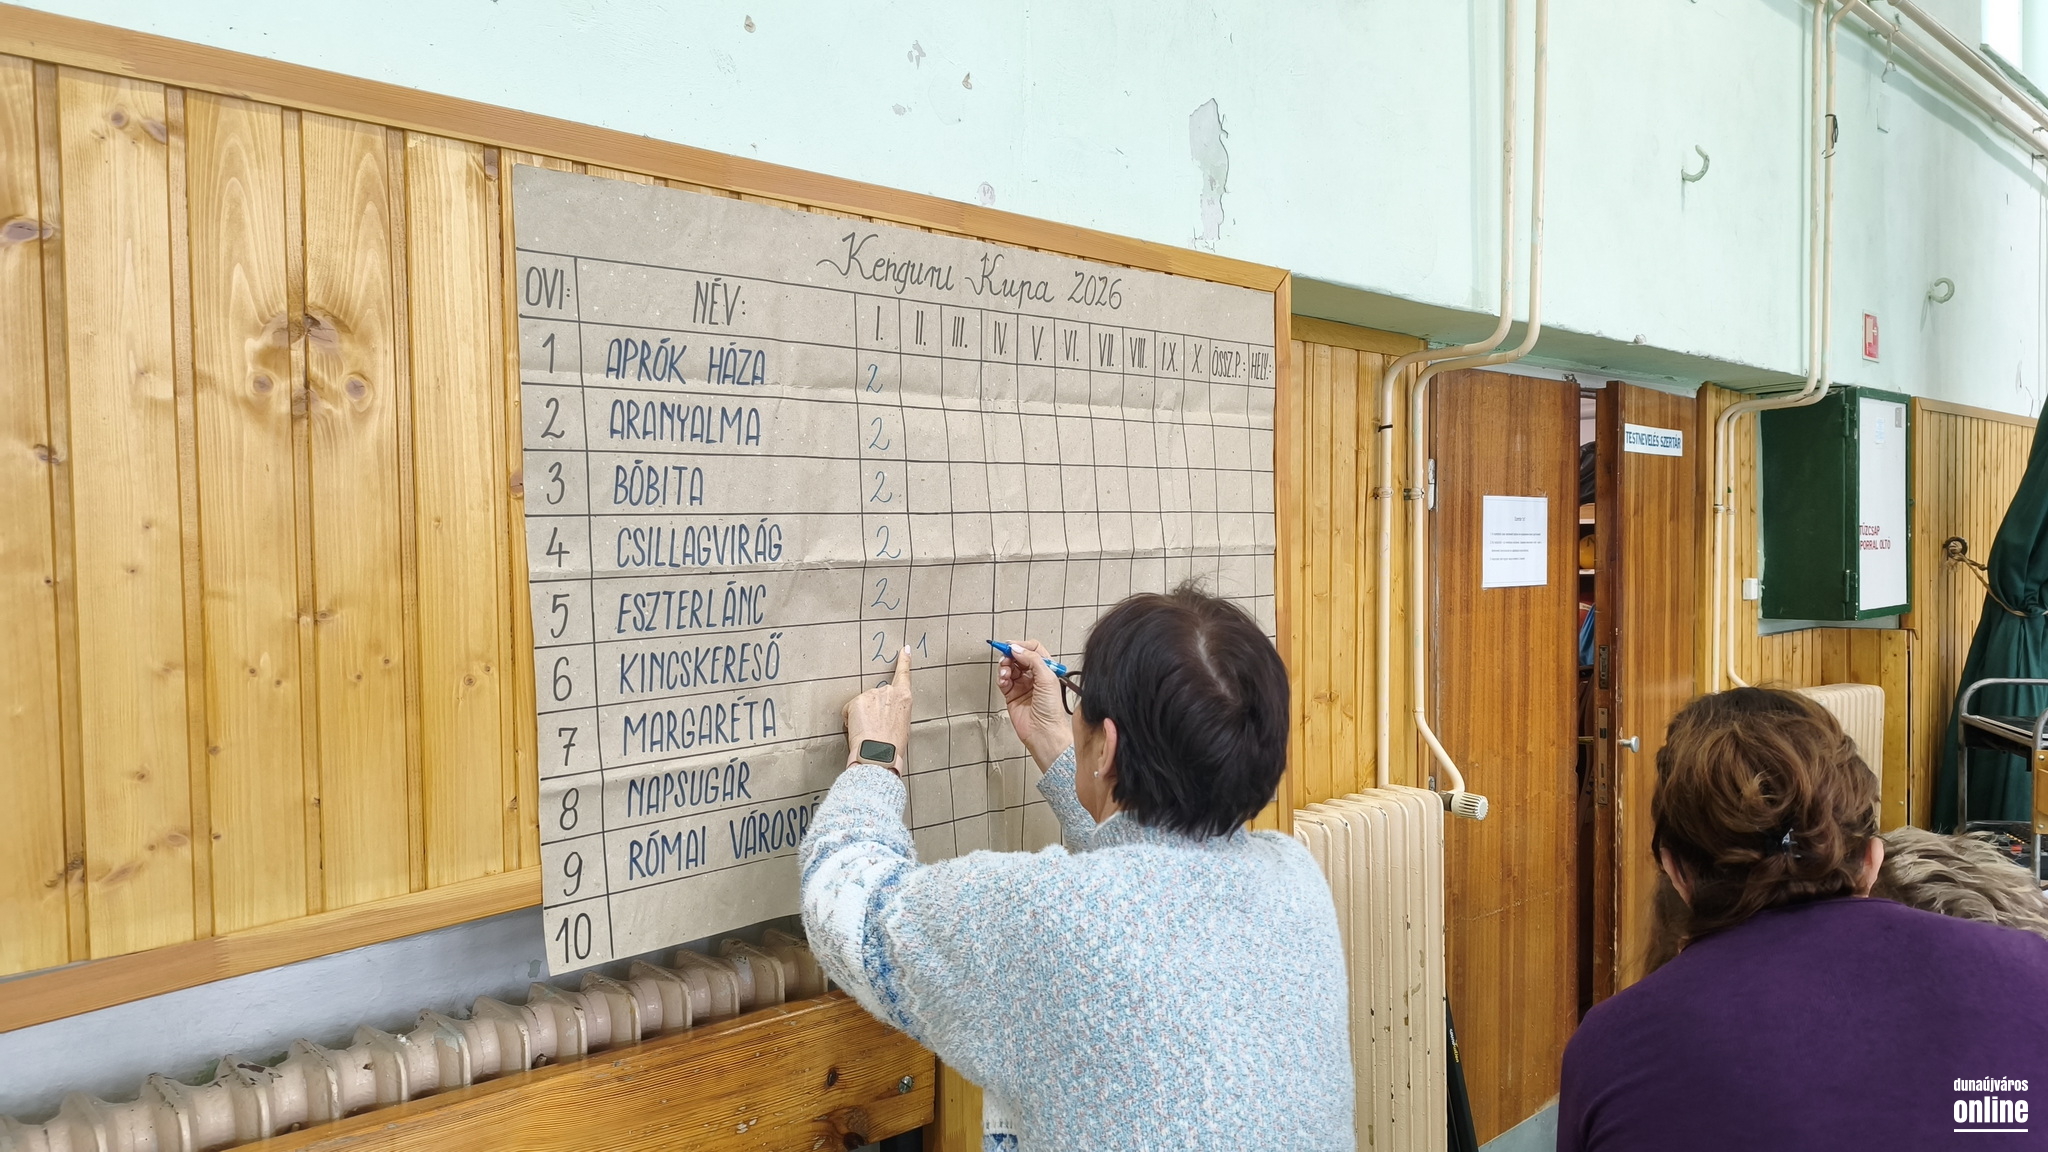 Kenguru Kupa 2026
OVI: NÉV: I. II. III. IV. V. VI. VII. VIII. IX. X. ÖSSZ.P.: HELY.:
1 APRÓK HÁZA 2
2 ARANYALMA 2
3 BÓBITA 2
4 CSILLAGVIRÁG 2
5 ESZTERLÁNC 2
6 KINCSKERESŐ 2 1
7 MARGARÉTA
8 NAPSUGÁR
9 RÓMAI
10
TESTNEVELÉS SZERTÁR
PORRAL OLTÓ
dunaújváros
online